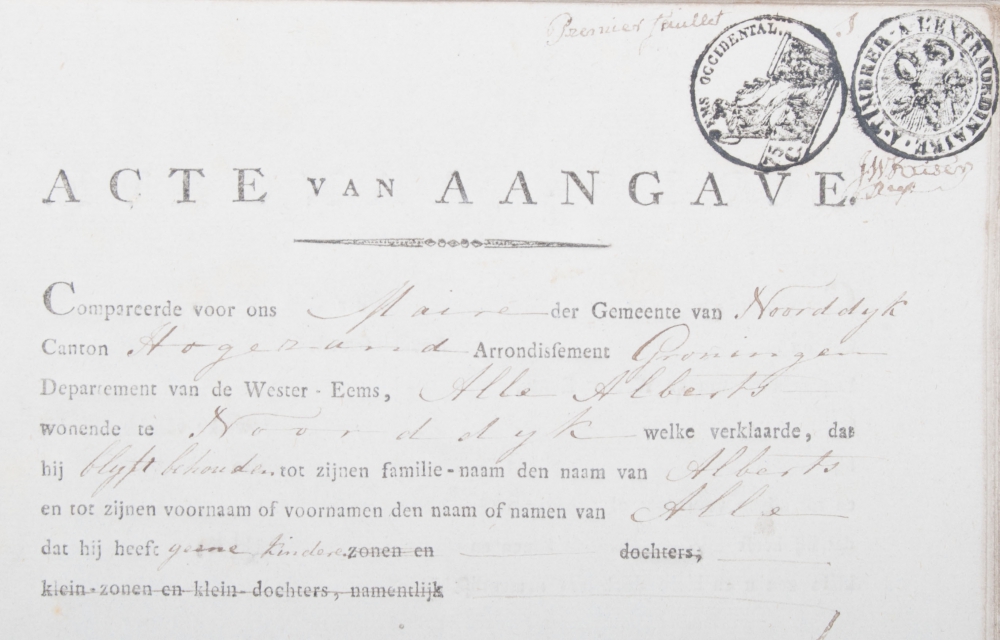 Premier feuillet
EMS OCCIDENTAL.
75 C
A TIMBRER A L'EXTRAORDINAIRE
ACTE VAN AANGAVE.
Compareerde voor ons Maire der Gemeente van Noorddyk
Canton Hogezand Arrondissement Groningen
Departement van de Wester-Eems, Alle Alberts
wonende te Noorddyk welke verklaarde, dat
hij blyft behouden tot zijnen familie-naam den naam van Alberts
en tot zijnen voornaam of voornamen den naam of namen van Alle
dat hij heeft geene kinderen zonen en dochters,
klein-zonen en klein-dochters, namentlijk